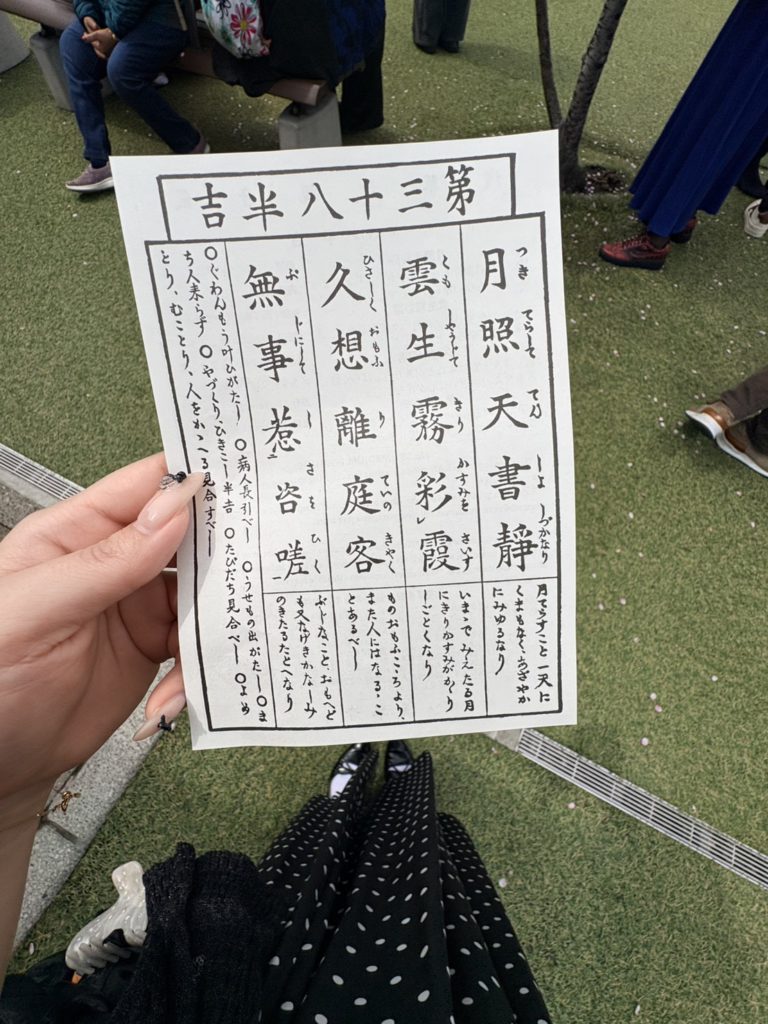 第三十八半吉
月照天書靜
つき てらして てん しよ しづかなり
月てらすこと一天に
くまもなく、あざやか
にみゆるなり
雲生霧彩レ霞
くも しやうして きり かすみを さいす
いまゝでみえたる月
にきりかすみがかゝり
しごとくなり
久想離庭客
ひさしく おもふ り ていの きやく
ものおもふこゝろより、
また人にはなるゝこ
とあるべし
無事惹二咨嗟一
ぶ じにして しさをひく
ぶじなこと、おもへど
も又なげきかなしみ
のきたるたとへなり
○ぐわんもう叶ひがたし ○病人長引べし ○うせもの出がたし ○ま
ち人来らず ○やづくり、ひきこし半吉 ○たびだち見合べし ○よめ
とり、むことり、人をかゝへる見合すべし